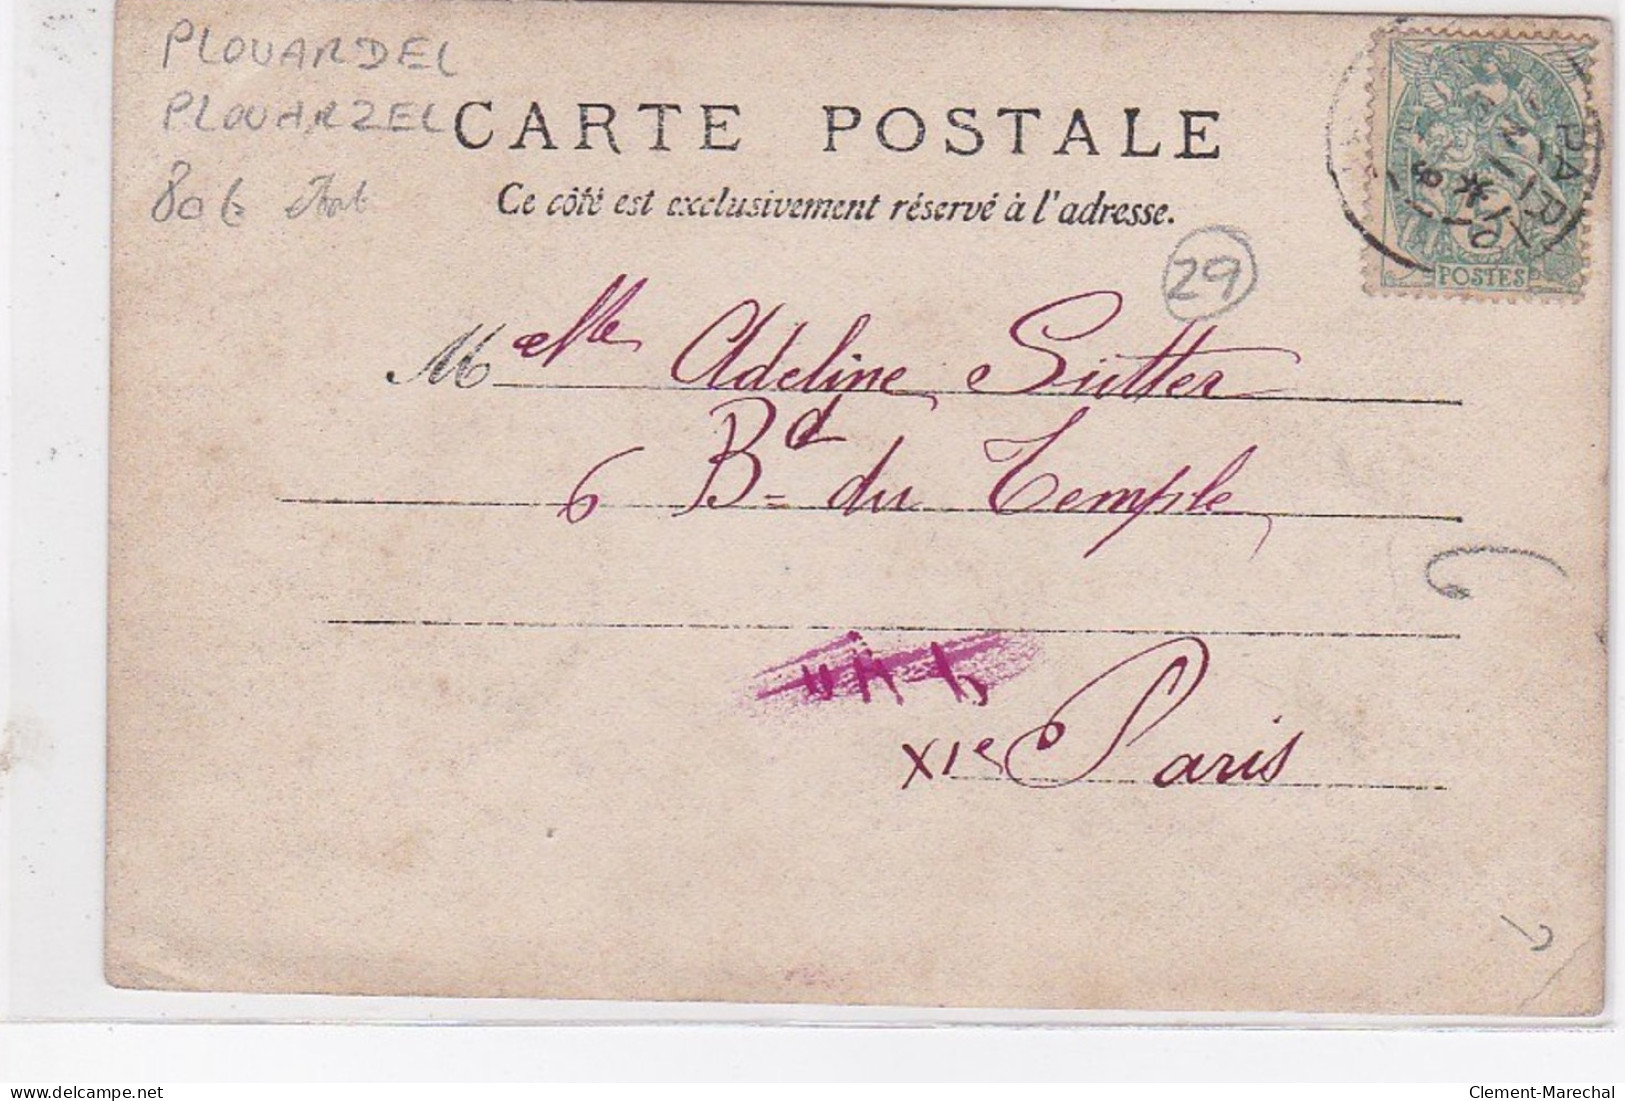 PLOUARDEL
PLOUARZEL
CARTE POSTALE
80 €
Ce côté est exclusivement réservé à l'adresse.
PARIS
POSTES
29
Melle Adeline Sutter
6 Bd du Temple
XIe Paris
delcampe.net
Clement-Marechal